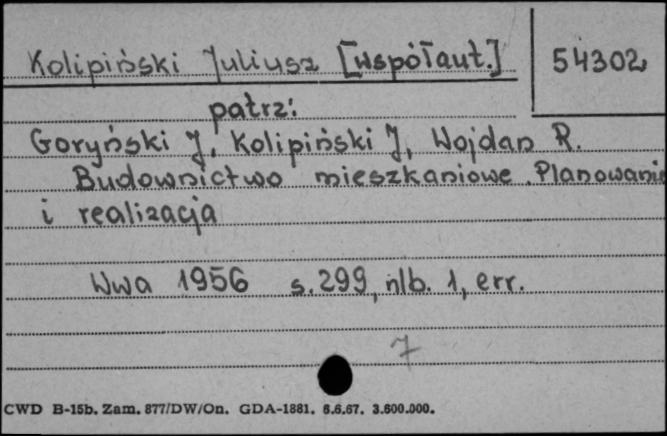 Kolipiński Juliusz [współaut.] 54302
patrz:
Goryński J, Kolipiński J, Wojdan R.
Budownictwo mieszkaniowe. Planowanie
i realizacja
Wwa 1956 s. 299, nlb. 1, err.
7
CWD B-15b. Zam. 877/DW/On. GDA-1881. 6.6.67. 3.600.000.